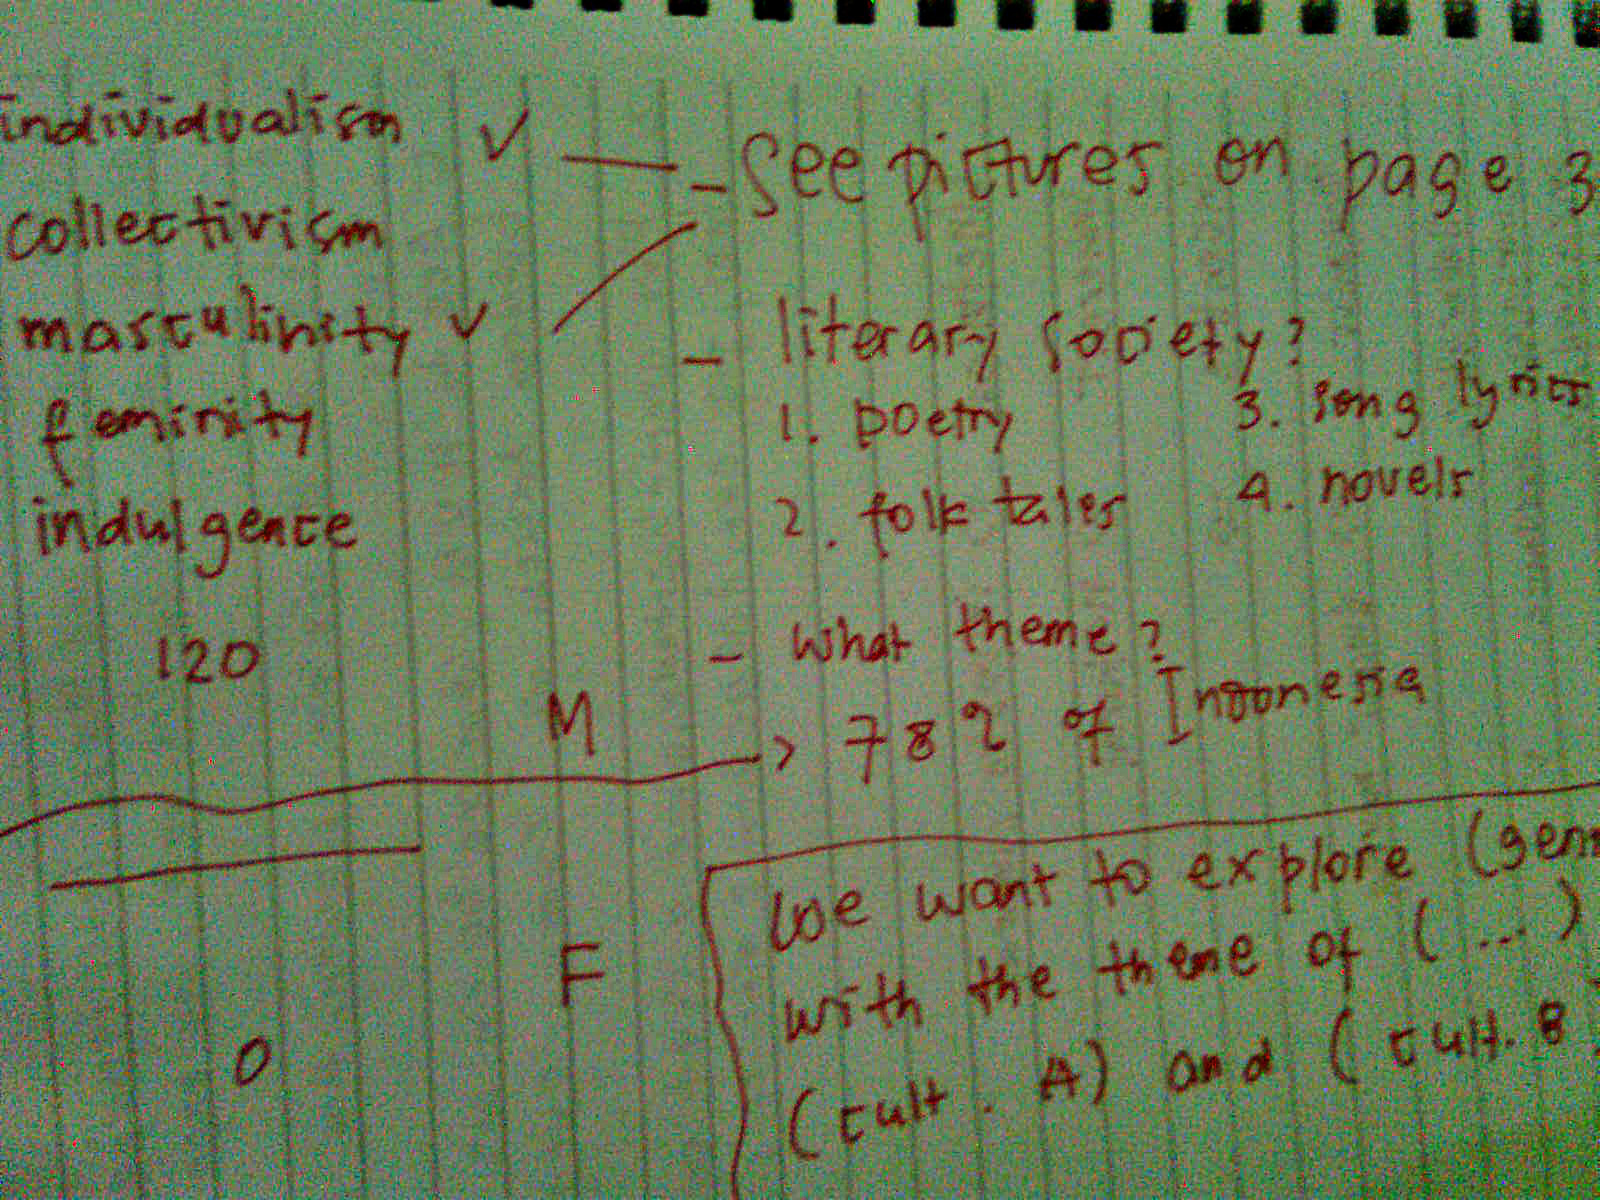 individualism ✓
collectivism
masculinity ✓
feminity
indulgence
120
M
F
0
- See pictures on page 3
- literary society?
1. poetry
2. folk tales
3. song lyrics
4. novels
- What theme?
> 782 of Indonesia
We want to explore (gen
with the theme of (...)
(cult. A) and (cult. B